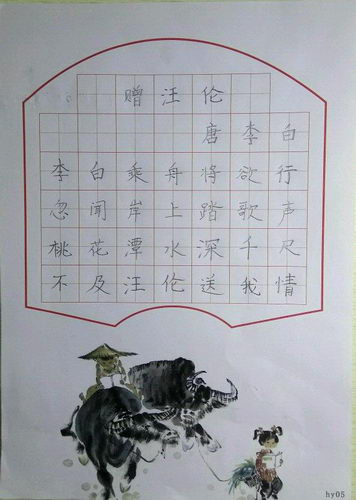 赠汪伦
唐李白
李白乘舟将欲行
忽闻岸上踏歌声
桃花潭水深千尺
不及汪伦送我情
hy05